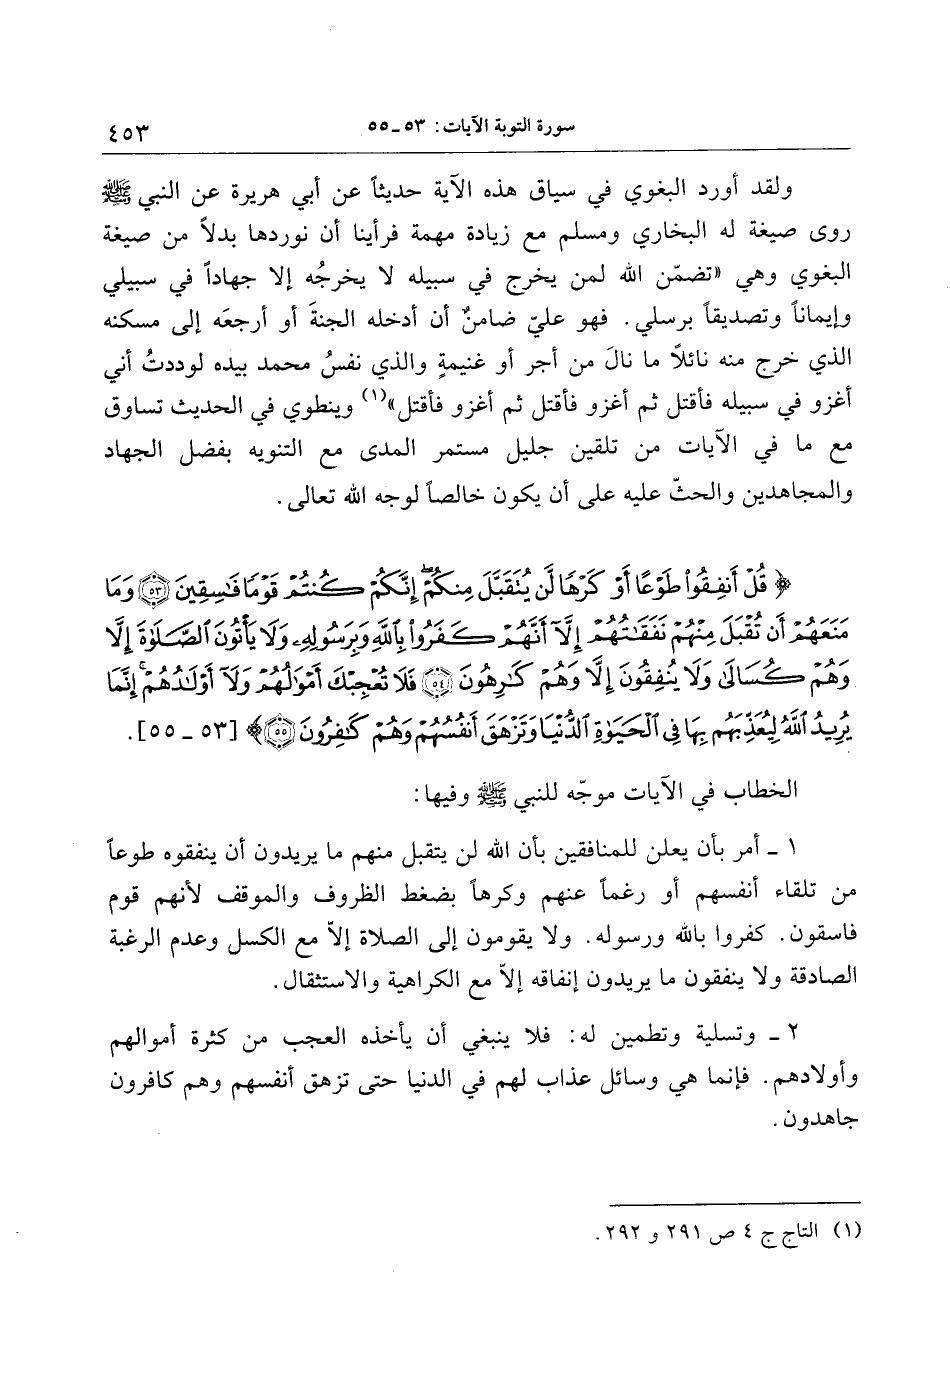 سورة التوبة الآيات: ٥٣ ـ ٥٥ ٤٥٣
ولقد أورد البغوي في سياق هذه الآية حديثاً عن أبي هريرة عن النبي ﷺ
روى صيغة له البخاري ومسلم مع زيادة مهمة فرأينا أن نوردها بدلاً من صيغة
البغوي وهي «تضمّن الله لمن يخرج في سبيله لا يخرجُه إلا جهاداً في سبيلي
وإيماناً وتصديقاً برسلي. فهو عليّ ضامنٌ أن أدخله الجنةَ أو أرجعَه إلى مسكنه
الذي خرج منه نائلاً ما نالَ من أجر أو غنيمةٍ والذي نفسُ محمد بيده لوددتُ أني
أغزو في سبيله فأقتل ثم أغزو فأقتل ثم أغزو فأقتل»(١) وينطوي في الحديث تساوق
مع ما في الآيات من تلقين جليل مستمر المدى مع التنويه بفضل الجهاد
والمجاهدين والحثّ عليه على أن يكون خالصاً لوجه الله تعالى.
﴿ قُلْ أَنفِقُواْ طَوْعًا أَوْ كَرْهًا لَّن يُتَقَبَّلَ مِنكُمْۖ إِنَّكُمْ كُنتُمْ قَوْمًا فَٰسِقِينَ ٥٣ وَمَا
مَنَعَهُمْ أَن تُقْبَلَ مِنْهُمْ نَفَقَٰتُهُمْ إِلَّآ أَنَّهُمْ كَفَرُواْ بِٱللَّهِ وَبِرَسُولِهِۦ وَلَا يَأْتُونَ ٱلصَّلَوٰةَ إِلَّا
وَهُمْ كُسَالَىٰ وَلَا يُنفِقُونَ إِلَّا وَهُمْ كَٰرِهُونَ ٥٤ فَلَا تُعْجِبْكَ أَمْوَٰلُهُمْ وَلَآ أَوْلَٰدُهُمْۚ إِنَّمَا
يُرِيدُ ٱللَّهُ لِيُعَذِّبَهُم بِهَا فِي ٱلْحَيَوٰةِ ٱلدُّنْيَا وَتَزْهَقَ أَنفُسُهُمْ وَهُمْ كَٰفِرُونَ ٥٥﴾ [٥٣ ـ ٥٥].
الخطاب في الآيات موجّه للنبي ﷺ وفيها:
١ ـ أمر بأن يعلن للمنافقين بأن الله لن يتقبل منهم ما يريدون أن ينفقوه طوعاً
من تلقاء أنفسهم أو رغماً عنهم وكرهاً بضغط الظروف والموقف لأنهم قوم
فاسقون. كفروا بالله ورسوله. ولا يقومون إلى الصلاة إلاّ مع الكسل وعدم الرغبة
الصادقة ولا ينفقون ما يريدون إنفاقه إلاّ مع الكراهية والاستثقال.
٢ ـ وتسلية وتطمين له: فلا ينبغي أن يأخذه العجب من كثرة أموالهم
وأولادهم. فإنما هي وسائل عذاب لهم في الدنيا حتى تزهق أنفسهم وهم كافرون
جاهدون.
(١) التاج ج ٤ ص ٢٩١ و ٢٩٢.